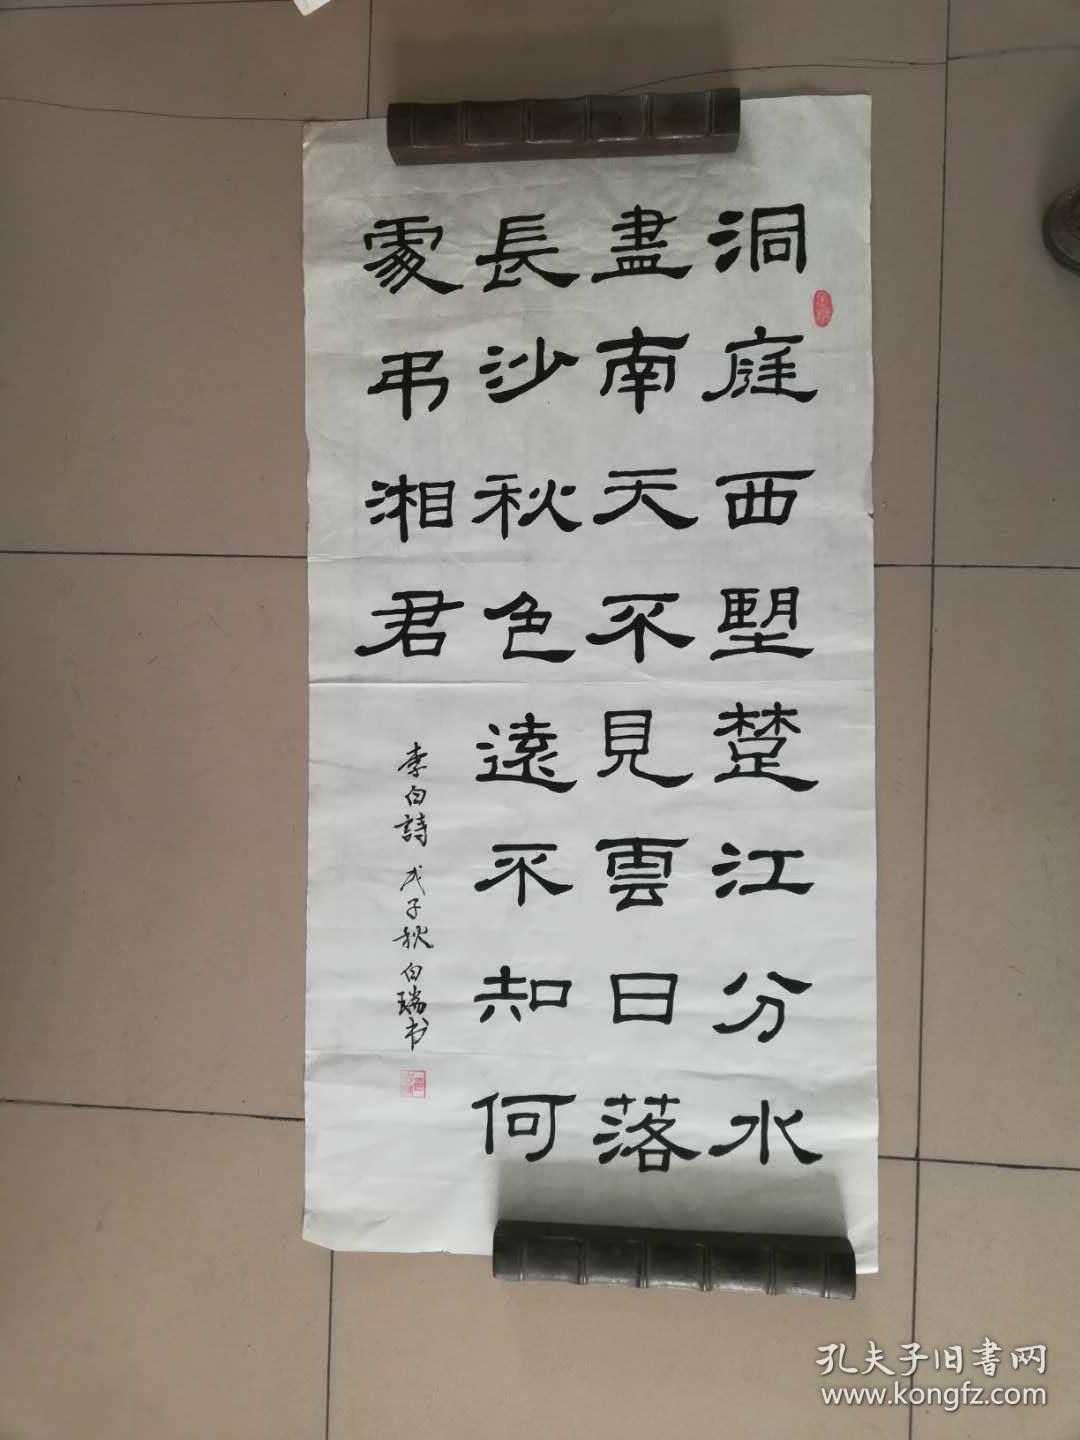 洞庭西朢楚江分水
盡南天不見雲日落
長沙秋色遠不知何
處弔湘君
李白詩 戊子秋 白瑞书
孔夫子旧書网
www.kongfz.com